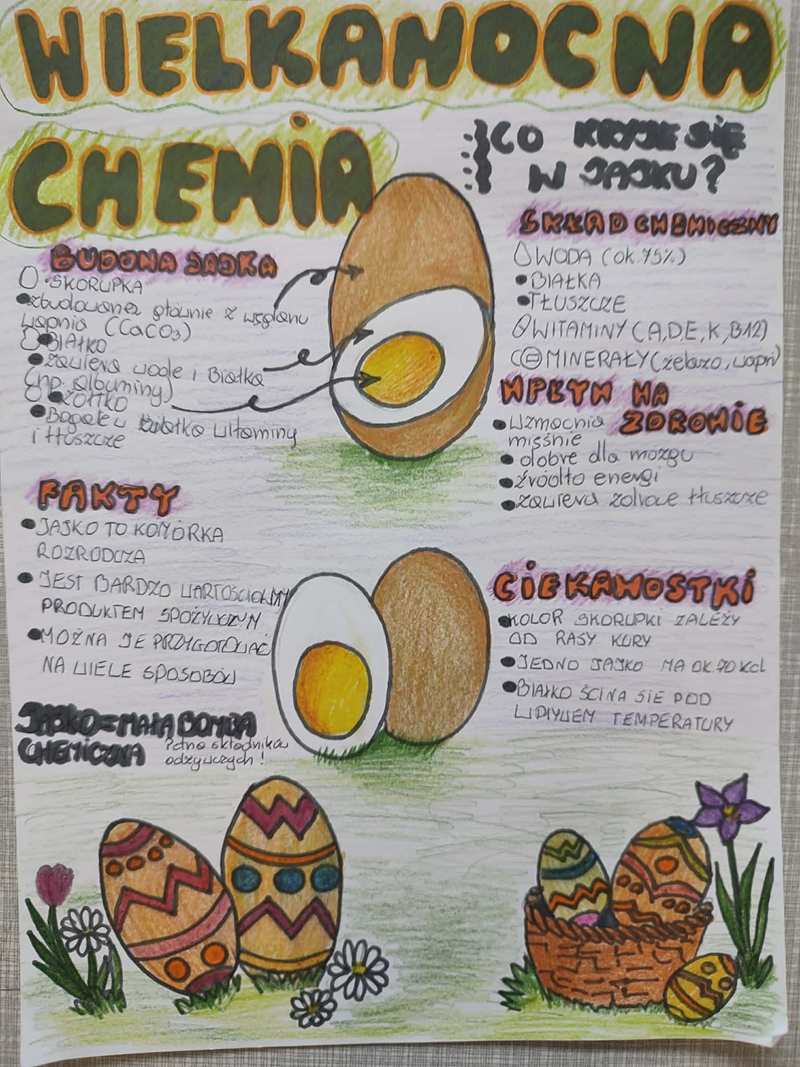 WIELKANOCNA
CHEMIA
CO KRYJE SIĘ
W JAJKU?
BUDOWA JAJKA
SKORUPKA
zbudowana głównie z węglanu
wapnia (CaCO3)
BIAŁKO
zawiera wodę i Białka
(np. albuminy)
ŻÓŁTKO
Bogate w białko witaminy
i tłuszcze
SKŁAD CHEMICZNY
WODA (ok. 75%)
BIAŁKA
TŁUSZCZE
WITAMINY (A,D,E,K,B12)
MINERAŁY (żelazo, wapń)
WPŁYW NA
ZDROWIE
Wzmocnia
mięśnie
dobre dla mózgu
źródło energi
zawiera zdrowe tłuszcze
FAKTY
JAJKO TO KOMÓRKA
ROZRODCZA
JEST BARDZO WARTOŚCIOWYM
PRODUKTEM SPOŻYWCZYM
MOŻNA JE PRZYGOTOWAĆ
NA WIELE SPOSOBÓW
CIEKAWOSTKI
KOLOR SKORUPKI ZALEŻY
OD RASY KURY
JEDNO JAJKO MA OK. 70 Kcl
BIAŁKO ŚCINA SIĘ POD
WPŁYWEM TEMPERATURY
JAJKO = MAŁA BOMBA
CHEMICZNA Pełna składników
odżywczych!